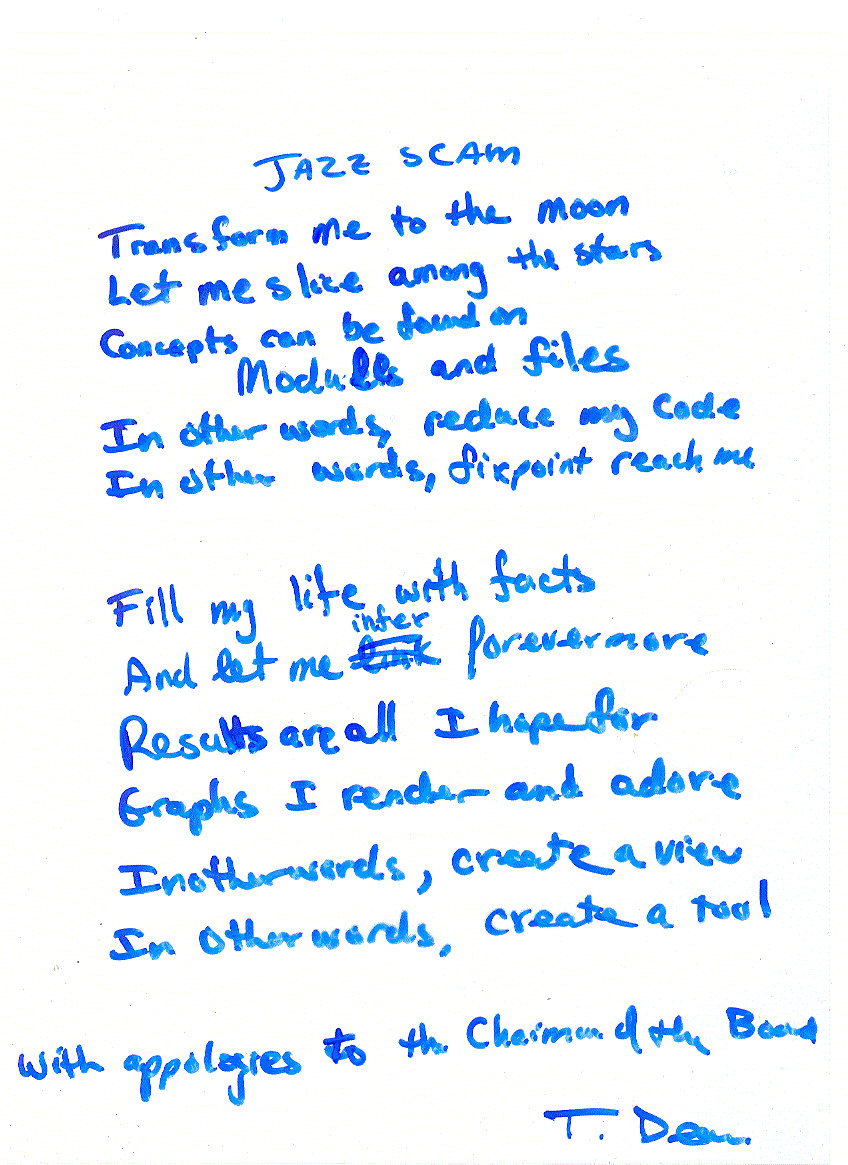 JAZZ SCAM
Transform me to the moon
Let me slice among the stars
Concepts can be found on
Modulls and files
In other words, reduce my code
In other words, fixpoint reach me
Fill my life with facts
infer
And let me link forevermore
Results are all I hope for
Graphs I render and adore
In other words, create a view
In other words, create a tool
With appologies to the Chairman of the Board
T. Dean